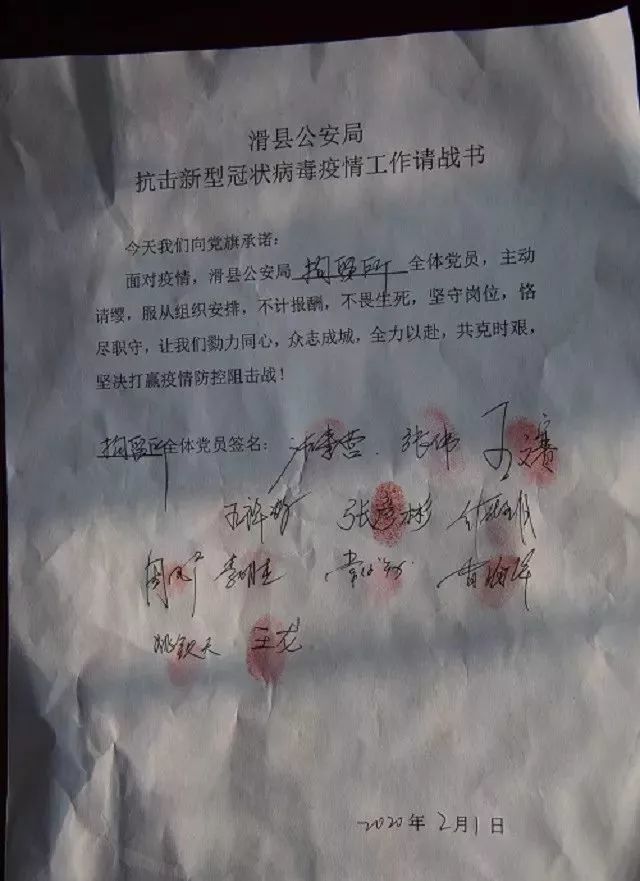 滑县公安局
抗击新型冠状病毒疫情工作请战书
今天我们向党旗承诺：
面对疫情，滑县公安局 拘留所 全体党员，主动
请缨，服从组织安排，不计报酬，不畏生死，坚守岗位，恪
尽职守，让我们勠力同心，众志成城，全力以赴，共克时艰，
坚决打赢疫情防控阻击战！
拘留所全体党员签名： 张伟
张彦彬
姚钦天 王龙
2020年2月1日